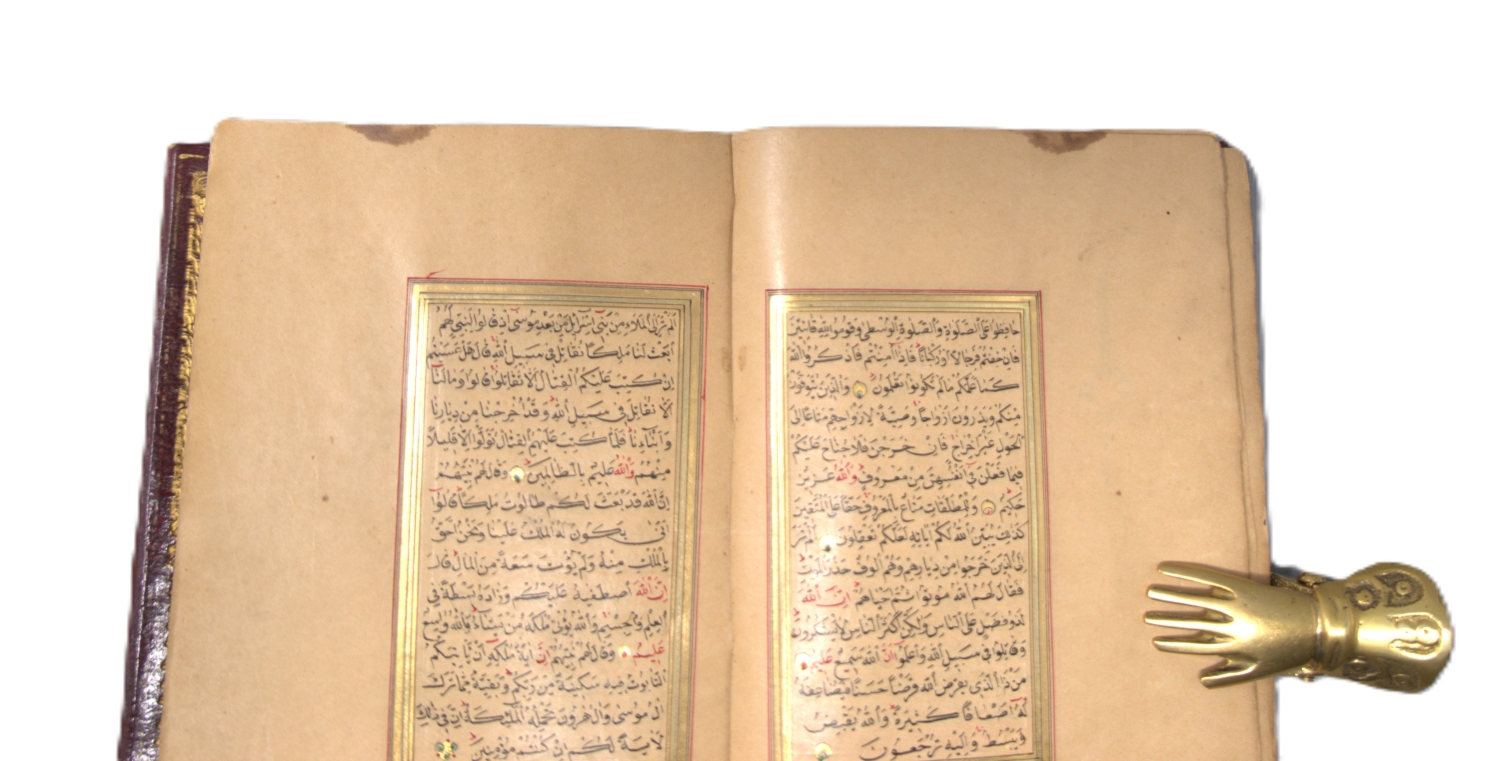 حافِظُوا عَلَى الصَّلَوةِ وَالصَّلَوةِ الْوُسْطَى وَقُومُوا لِلّٰهِ قَانِتِينَ
فَاِنْ خِفْتُمْ فَرِجَالًا اَوْ رُكْبَانًا فَاِذَا اَمِنْتُمْ فَاذْكُرُوا اللّٰهَ
كَمَا عَلَّمَكُمْ مَا لَمْ تَكُونُوا تَعْلَمُونَ وَالَّذِينَ يُتَوَفَّوْنَ
مِنْكُمْ وَيَذَرُونَ اَزْوَاجًا وَصِيَّةً لِاَزْوَاجِهِمْ مَتَاعًا اِلَى
الْحَوْلِ غَيْرَ اِخْرَاجٍ فَاِنْ خَرَجْنَ فَلَا جُنَاحَ عَلَيْكُمْ
فِيمَا فَعَلْنَ فِي اَنْفُسِهِنَّ مِنْ مَعْرُوفٍ وَاللّٰهُ عَزِيزٌ
حَكِيمٌ وَلِلْمُطَلَّقَاتِ مَتَاعٌ بِالْمَعْرُوفِ حَقًّا عَلَى الْمُتَّقِينَ
كَذٰلِكَ يُبَيِّنُ اللّٰهُ لَكُمْ اٰيَاتِهِ لَعَلَّكُمْ تَعْقِلُونَ اَلَمْ تَرَ
اِلَى الَّذِينَ خَرَجُوا مِنْ دِيَارِهِمْ وَهُمْ اُلُوفٌ حَذَرَ الْمَوْتِ
فَقَالَ لَهُمُ اللّٰهُ مُوتُوا ثُمَّ اَحْيَاهُمْ اِنَّ اللّٰهَ
لَذُو فَضْلٍ عَلَى النَّاسِ وَلٰكِنَّ اَكْثَرَ النَّاسِ لَا يَشْكُرُونَ
وَقَاتِلُوا فِي سَبِيلِ اللّٰهِ وَاعْلَمُوا اَنَّ اللّٰهَ سَمِيعٌ عَلِيمٌ
مَنْ ذَا الَّذِي يُقْرِضُ اللّٰهَ قَرْضًا حَسَنًا فَيُضَاعِفَهُ
لَهُ اَضْعَافًا كَثِيرَةً وَاللّٰهُ يَقْبِضُ
وَيَبْسُطُ وَاِلَيْهِ تُرْجَعُونَ
اَلَمْ تَرَ اِلَى الْمَلَاءِ مِنْ بَنِي اِسْرَائِلَ مِنْ بَعْدِ مُوسَى اِذْ قَالُوا لِنَبِيٍّ لَهُمُ
ابْعَثْ لَنَا مَلِكًا نُقَاتِلْ فِي سَبِيلِ اللّٰهِ قَالَ هَلْ عَسَيْتُمْ
اِنْ كُتِبَ عَلَيْكُمُ الْقِتَالُ اَلَّا تُقَاتِلُوا قَالُوا وَمَا لَنَا
اَلَّا نُقَاتِلَ فِي سَبِيلِ اللّٰهِ وَقَدْ اُخْرِجْنَا مِنْ دِيَارِنَا
وَاَبْنَاءِنَا فَلَمَّا كُتِبَ عَلَيْهِمُ الْقِتَالُ تَوَلَّوْا اِلَّا قَلِيلًا
مِنْهُمْ وَاللّٰهُ عَلِيمٌ بِالظَّالِمِينَ وَقَالَ لَهُمْ نَبِيُّهُمْ
اِنَّ اللّٰهَ قَدْ بَعَثَ لَكُمْ طَالُوتَ مَلِكًا قَالُوا
اَنَّى يَكُونُ لَهُ الْمُلْكُ عَلَيْنَا وَنَحْنُ اَحَقُّ
بِالْمُلْكِ مِنْهُ وَلَمْ يُؤْتَ سَعَةً مِنَ الْمَالِ قَالَ
اِنَّ اللّٰهَ اصْطَفٰيهُ عَلَيْكُمْ وَزَادَهُ بَسْطَةً فِي
الْعِلْمِ وَالْجِسْمِ وَاللّٰهُ يُؤْتِي مُلْكَهُ مَنْ يَشَاءُ وَاللّٰهُ وَاسِعٌ
عَلِيمٌ وَقَالَ لَهُمْ نَبِيُّهُمْ اِنَّ اٰيَةَ مُلْكِهِ اَنْ يَأْتِيَكُمُ
التَّابُوتُ فِيهِ سَكِينَةٌ مِنْ رَبِّكُمْ وَبَقِيَّةٌ مِمَّا تَرَكَ
اٰلُ مُوسَى وَاٰلُ هٰرُونَ تَحْمِلُهُ الْمَلٰئِكَةُ اِنَّ فِي ذٰلِكَ
لَاٰيَةً لَكُمْ اِنْ كُنْتُمْ مُؤْمِنِينَ